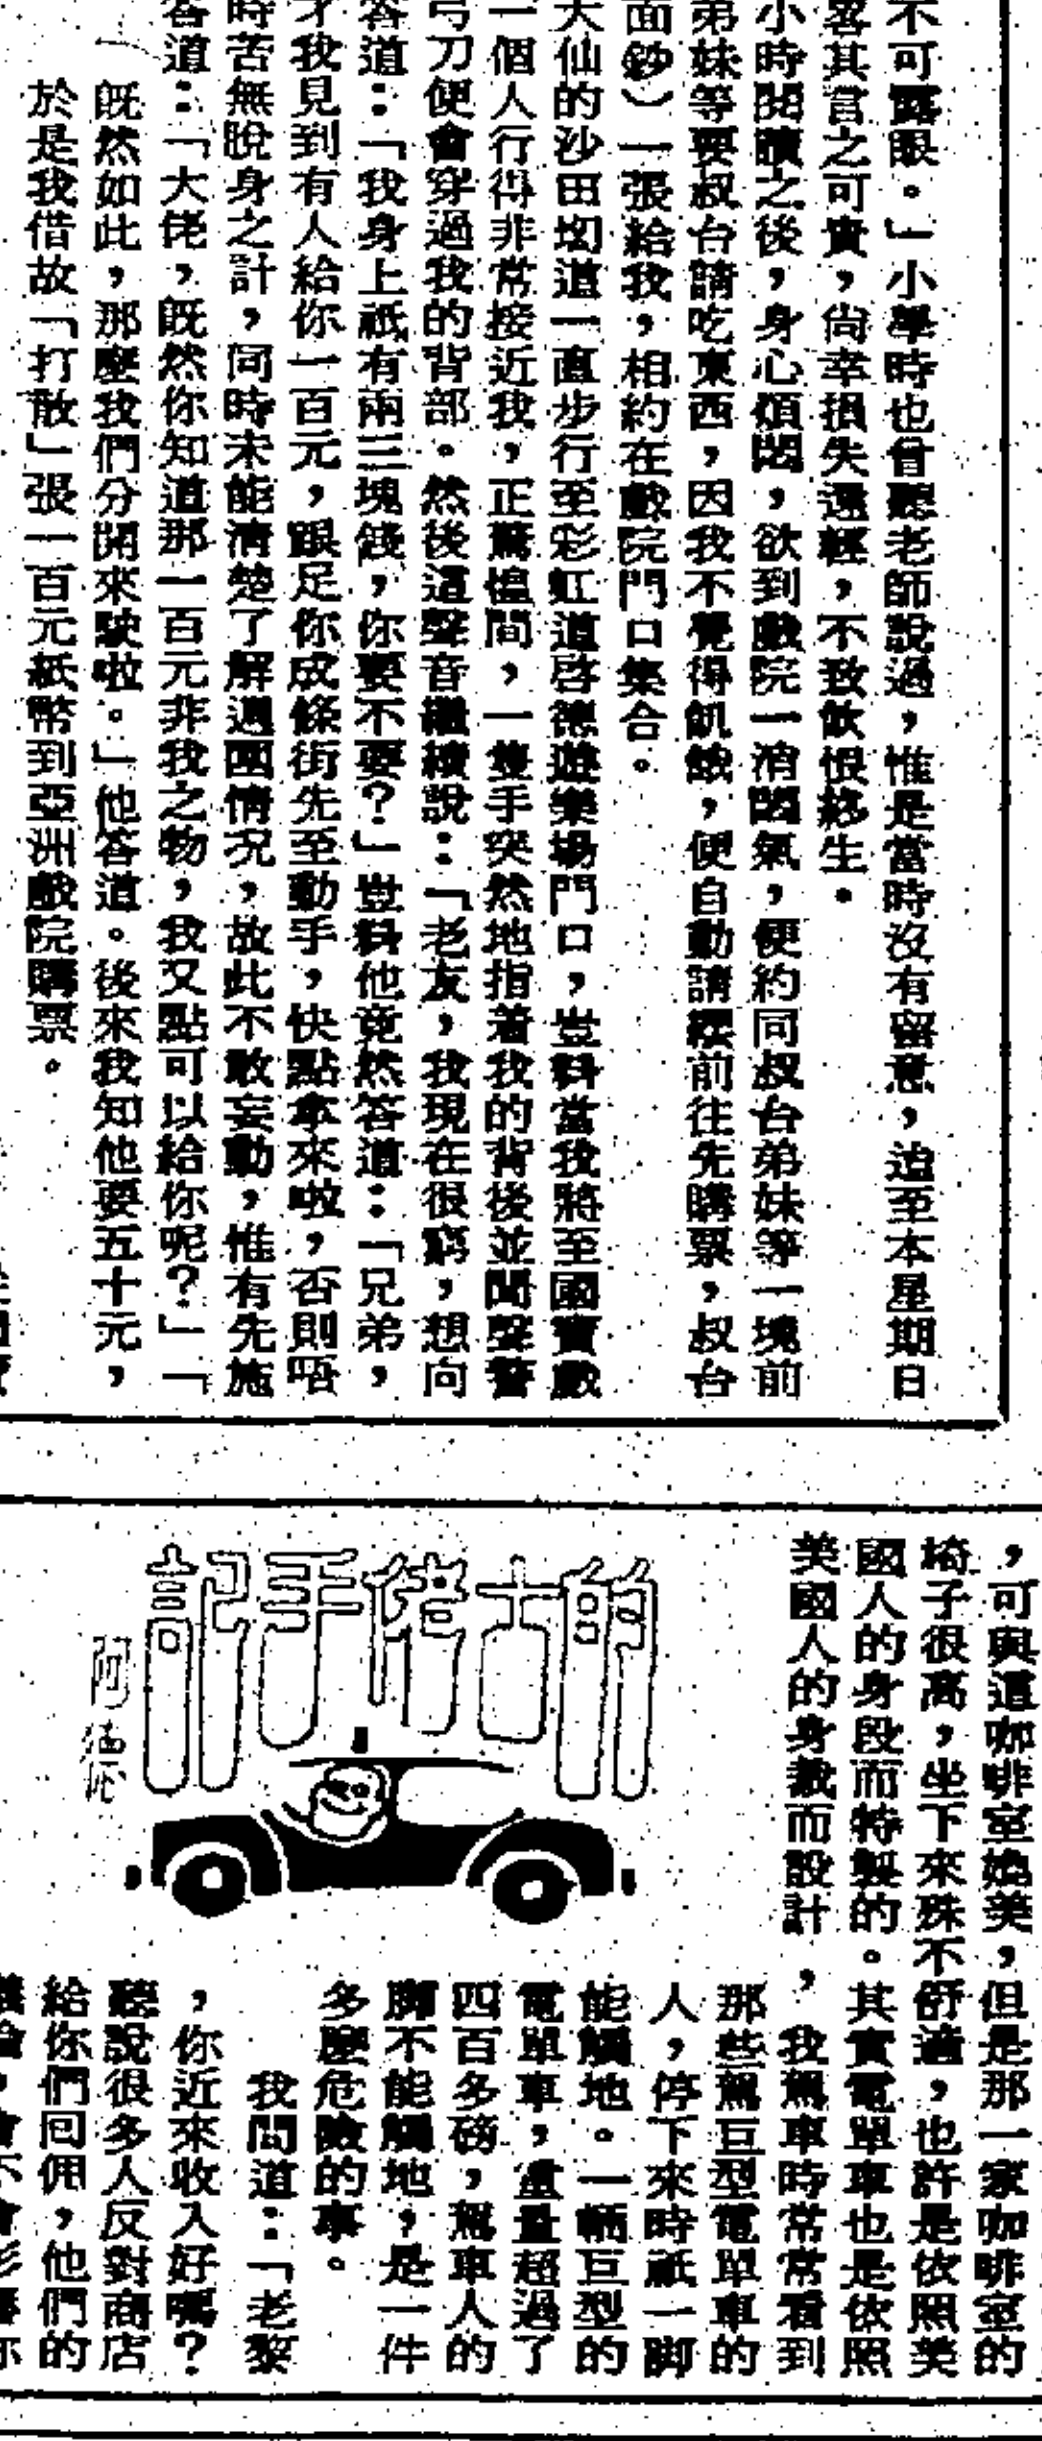 不可露眼。」小學時也曾聽老師說過，惟是當時沒有留意，迨至本星期日
其言之可實，尙幸損失還輕，不致飲恨終生。
小時閱讀之後，身心煩悶，欲到戲院一消悶氣，便約同叔台弟妹等一塊前
弟妹等要叔台請吃東西，因我不覺得飢餓，便自動請纓前往先購票，叔台
面鈔）一張給我，相約在戲院門口集合。
大仙的沙田坳道一直步行至彩虹道啓德遊樂場門口，豈料當我將至國寶戲
一個人行得非常接近我，正驚惶間，一隻手突然地指着我的背後並聞聲警
弓刀便會穿過我的背部。然後這聲音繼續說：「老友，我現在很窮，想向
答道：「我身上祇有兩三塊錢，你要不要？」豈料他竟然答道：「兄弟，
才我見到有人給你一百元，跟足你成條街先至動手，快點拿來啦，否則唔
時苦無脫身之計，同時未能清楚了解週圍情況，故此不敢妄動，惟有先施
答道：「大佬，旣然你知道那一百元非我之物，我又點可以給你呢？」「
旣然如此，那麼我們分開來駛啦。」他答道。後來我知他要五十元，
於是我借故「打散」張一百元紙幣到亞洲戲院購票。
，可與這咖啡室媲美，但是那一家咖啡室的
椅子很高，坐下來殊不舒適，也許是依照美
國人的身段而特製的。其實電單車也是依照
美國人的身裁而設計，
我駕車時常常看到
那些駕巨型電單車的
人，停下來時祇一脚
能觸地。一輛巨型的
電單車，重量超過了
四百多磅，駕車人的
脚不能觸地，是一件
多麼危險的事。
的士佬手記
阿
我問道：「老黎
，你近來收入好嗎？
聽說很多人反對商店
給你們回佣，他們的